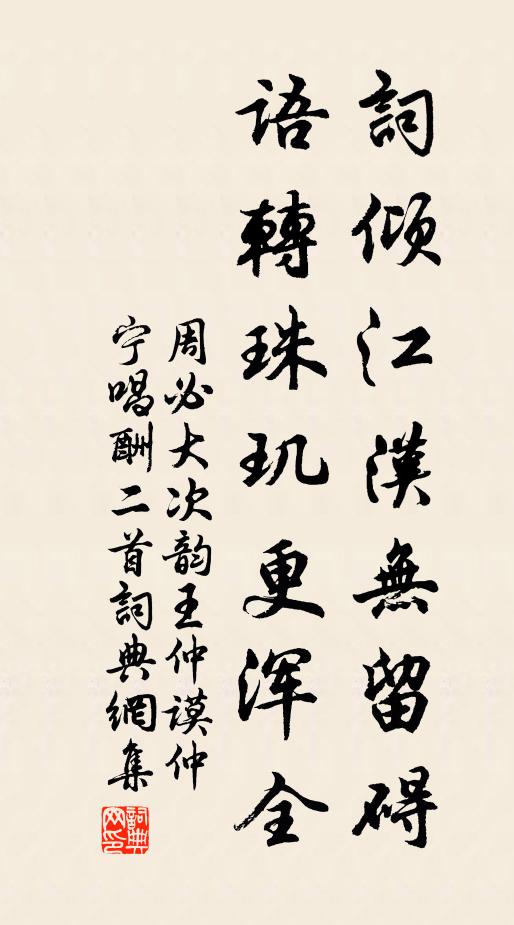 詞傾江漢無留碍
語轉珠玑更浑全
周必大次韵王仲谟仲
宁唱酬二首詞典網集
詞典
网印